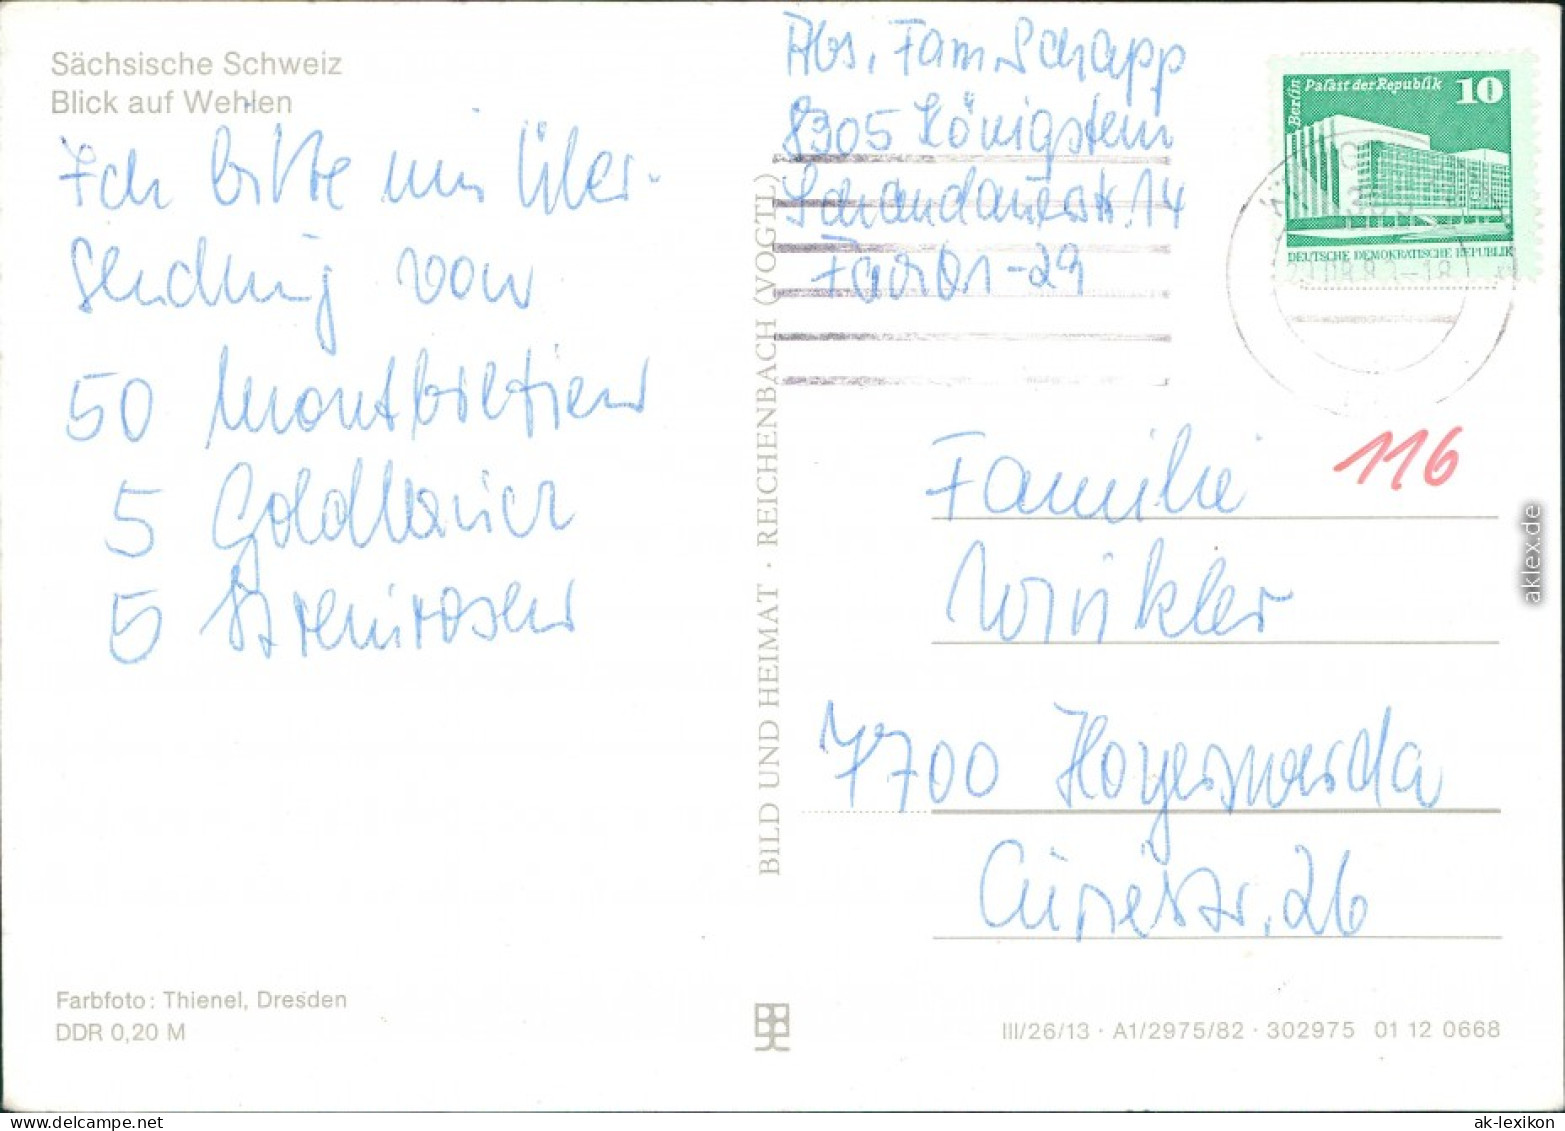 Sächsische Schweiz
Blick auf Wehlen
Ich bitte um Über-
sendung von
50 Montbretien
5 Goldlauch
5
Abs. Fam. Schapp
8305 Königstein
Schandauerstr. 14
-29
Berlin Palast der Republik 10
DEUTSCHE DEMOKRATISCHE REPUBLIK
116
Familie
Winkler
7700 Hoyerswerda
Curiestr. 26
BILD UND HEIMAT · REICHENBACH (VOGTL)
Farbfoto: Thienel, Dresden
DDR 0,20 M
III/26/13 · A1/2975/82 · 302975 01 12 0668
aklex.de
ak-lexikon